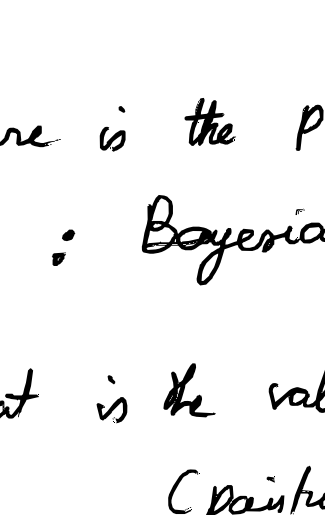 re is the P
: Bayesia
at is the val
(paintu